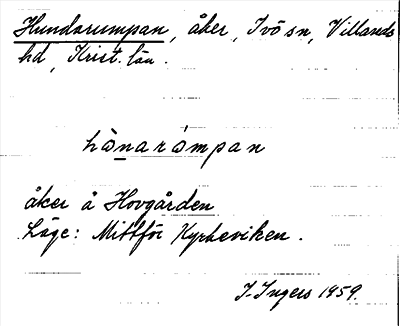 Hundarumpan, åker, Ivö sn, Villands
hd, Krist. län.
hànarómpan
åker å Hovgården
Läge: Mittför Kyrkeviken.
I. Ingers 1959.